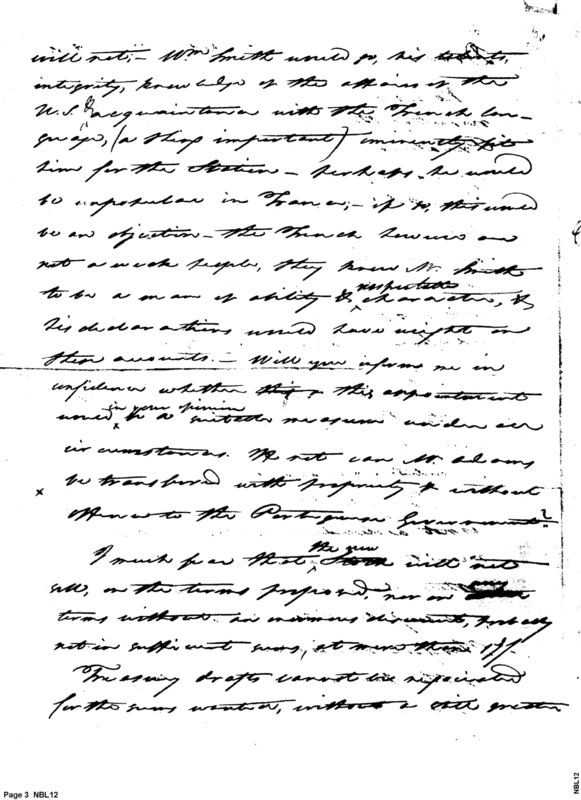 will not; – Wm Smith would go, his talents,
integrity, knowledge of the affairs of the
U.S. & acquaintance with the French lan-
guage, (a thing important) eminently fit
him for the Station – perhaps he would
be unpopular in France; – if so, this would
be an objection – the French however are
not a weak people, they know Mr. Smith
respectable
to be a man of ability & character, &
his declarations would have weight on
these accounts. – Will you inform me in
confidence whether this appointment
in your opinion
would be a suitable measure under all
circumstances. If not can Mr. Adams
be transferred with propriety & without
offence to the Portuguese Government?
the new
I much fear that Stock will not
sell, on the terms proposed, nor on any
terms without an enormous discount, probably
not in sufficient sums, at more than
Treasury drafts cannot be negociated
for the sums wanted, without a still greater
Page 3 NBL12
NBL12